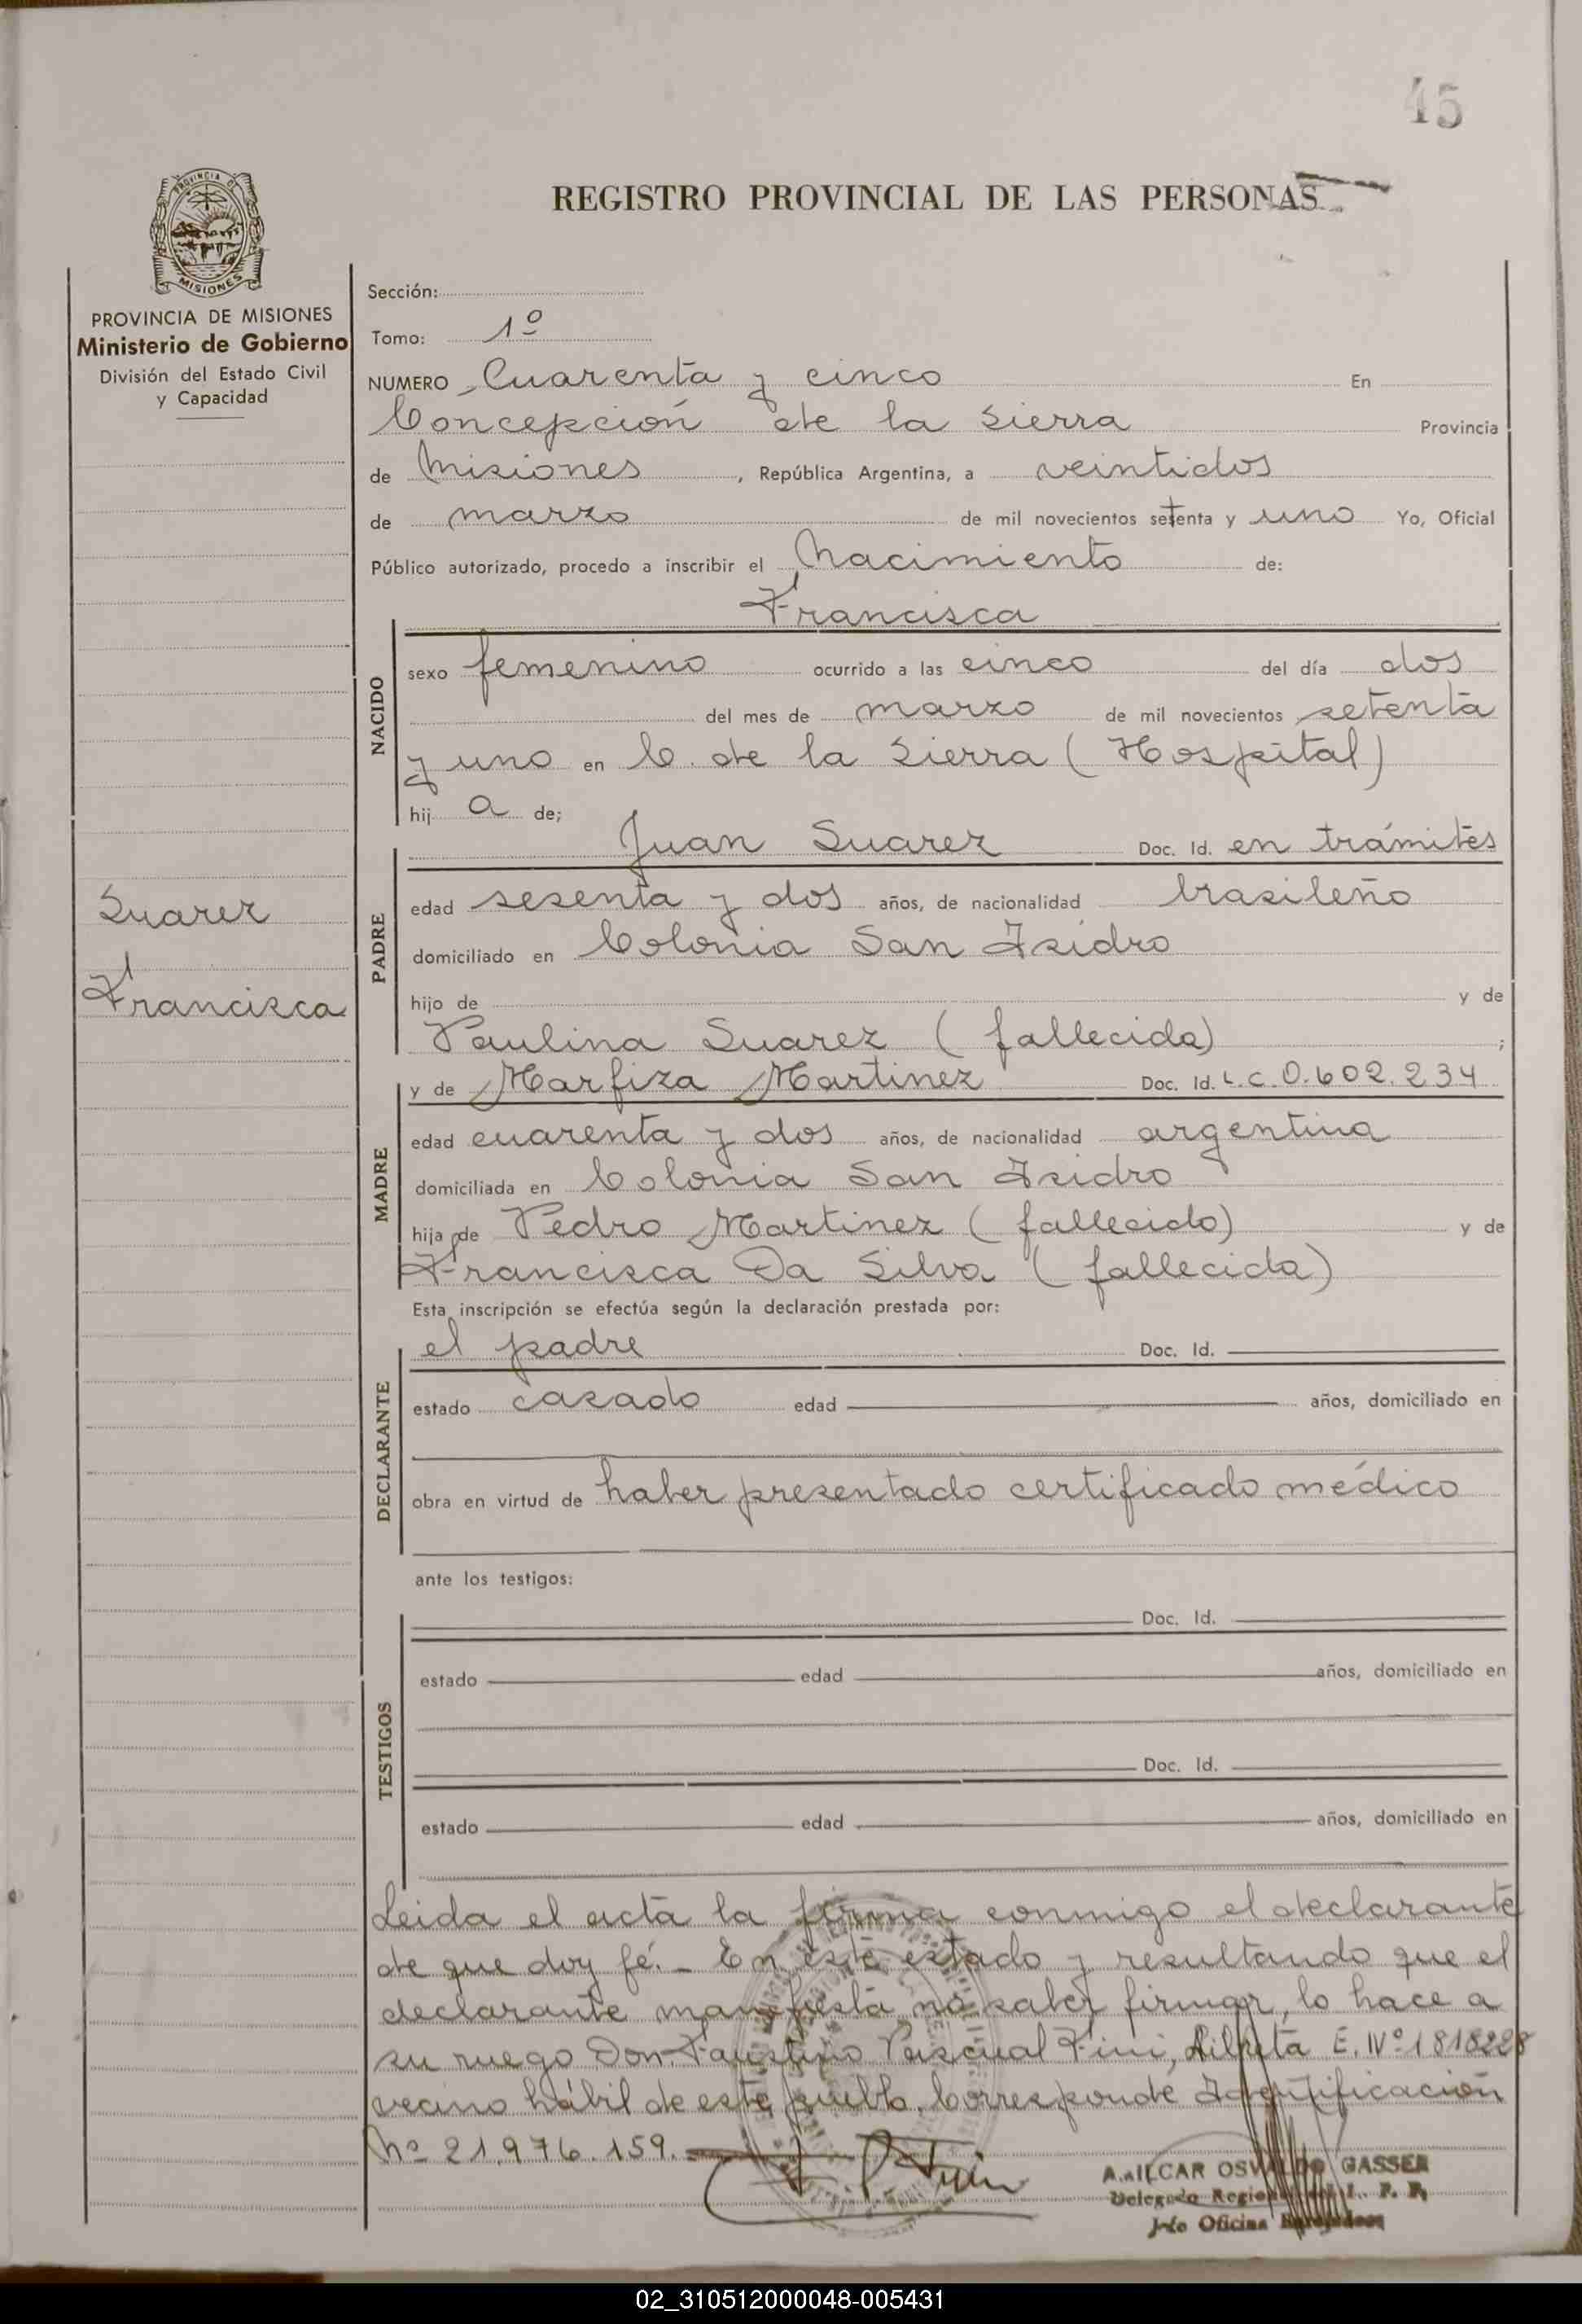 45
REGISTRO PROVINCIAL DE LAS PERSONAS
PROVINCIA DE
MISIONES
PROVINCIA DE MISIONES
Ministerio de Gobierno
División del Estado Civil
y Capacidad
Suarez
Francisca
Sección:
Tomo: 1º
NUMERO Cuarenta y cinco En
Concepción de la Sierra Provincia
de Misiones, República Argentina, a veintidos
de marzo de mil novecientos setenta y uno Yo, Oficial
Público autorizado, procedo a inscribir el Nacimiento de:
Francisca
NACIDO
sexo femenino ocurrido a las cinco del día dos
del mes de marzo de mil novecientos setenta
y uno en C. de la Sierra (Hospital)
hij a de;
Juan Suarez Doc. Id. en trámites
PADRE
edad sesenta y dos años, de nacionalidad brasileño
domiciliado en Colonia San Isidro
hijo de y de
Paulina Suarez (fallecida) ;
y de Marfiza Martinez Doc. Id. L.C.0.602.234
MADRE
edad cuarenta y dos años, de nacionalidad argentina
domiciliada en Colonia San Isidro
hija de Pedro Martinez (fallecido) y de
Francisca Da Silva (fallecida)
Esta inscripción se efectúa según la declaración prestada por:
el padre Doc. Id.
DECLARANTE
estado casado edad años, domiciliado en
obra en virtud de haber presentado certificado médico
ante los testigos:
Doc. Id.
TESTIGOS
estado edad años, domiciliado en
Doc. Id.
estado edad años, domiciliado en
Leida el acta la firma conmigo el declarante
de que doy fé.- En este estado y resultando que el
declarante manifiesta no saber firmar, lo hace a
su ruego Don Faustino Pascual Fini, Libreta E. Nº 1818228
vecino hábil de este pueblo. Corresponde Identificación
Nº 21.976.159.
AMILCAR OSVALDO GASSER
Delegado Regional
Jefe Oficina
02_310512000048-005431